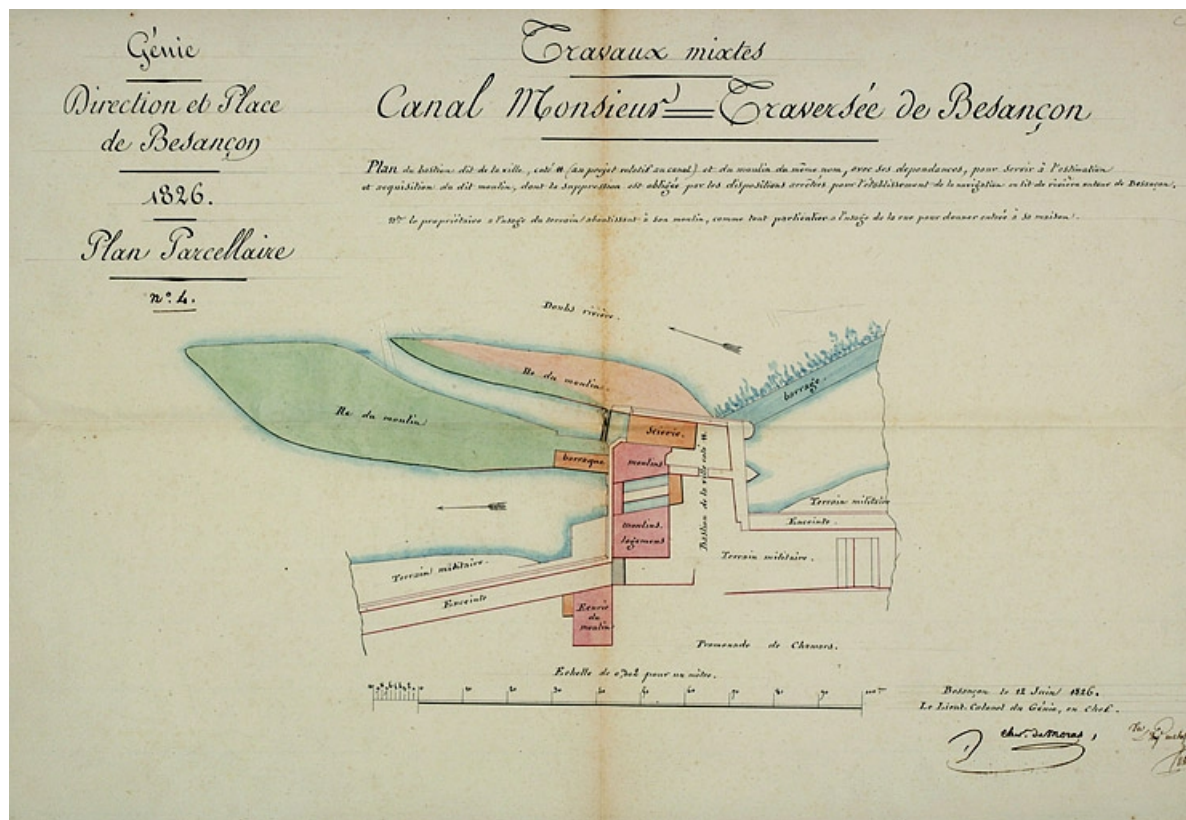 Génie
Direction et Place
de Besançon
1826.
Plan Parcellaire
n.° 4.
Travaux mixtes
Canal Monsieur = Traversée de Besançon
Plan du bastion dit de la ville, coté (au projet relatif au canal) et du moulin du même nom, avec ses dependances, pour servir à l'estimation
et acquisition du dit moulin, dont la suppression est obligée par les dispositions arrêtées pour l'établissement de la navigation en lit de rivière autour de Besançon.
le propriétaire a l'usage du terrain aboutissant à son moulin, comme tout particulier a l'usage de la rue pour donner entrée à sa maison.
Doubs rivière.
Ile du moulin.
Ile du moulin
barrage.
Scierie.
barraque
moulins
Bastion de la ville coté
Terrain militaire
Enceinte
moulins.
logement
Terrain militaire.
Terrain militaire.
Enceinte
Ecurie
du
moulin
Promenade de Chamars.
Echelle de 0,002 pour un mètre.
10 20 30 40 50 60 70 80 90 100
Besançon le 12 Juin 1826.
Le Lieut. Colonel du Génie, en Chef.
cher. de Moras,